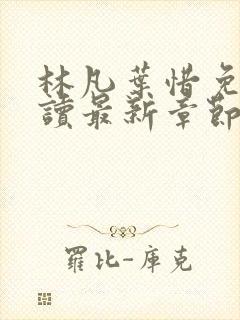 林凡葉惜免
讀最新章節
羅比-庫克